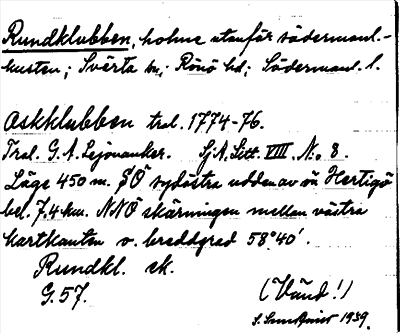 Rundklubben, holme utanför södermanl.-
kusten; Svärta sn; Rönö hd; Södermanl. l.
Askklubben tral. 1774-76.
Tral. G. A. Lejonanker. Sj. A. Litt. VIII. N:o 8.
Läge 450 m. SÖ sydöstra udden av ön Hertigö
bel. 7,4 km. NNÖ skärningen mellan västra
kartkanten o. breddgrad 58°40'.
Rundkl. ek.
G. 57.
(Vänd!)
S. Sundqvist 1939.